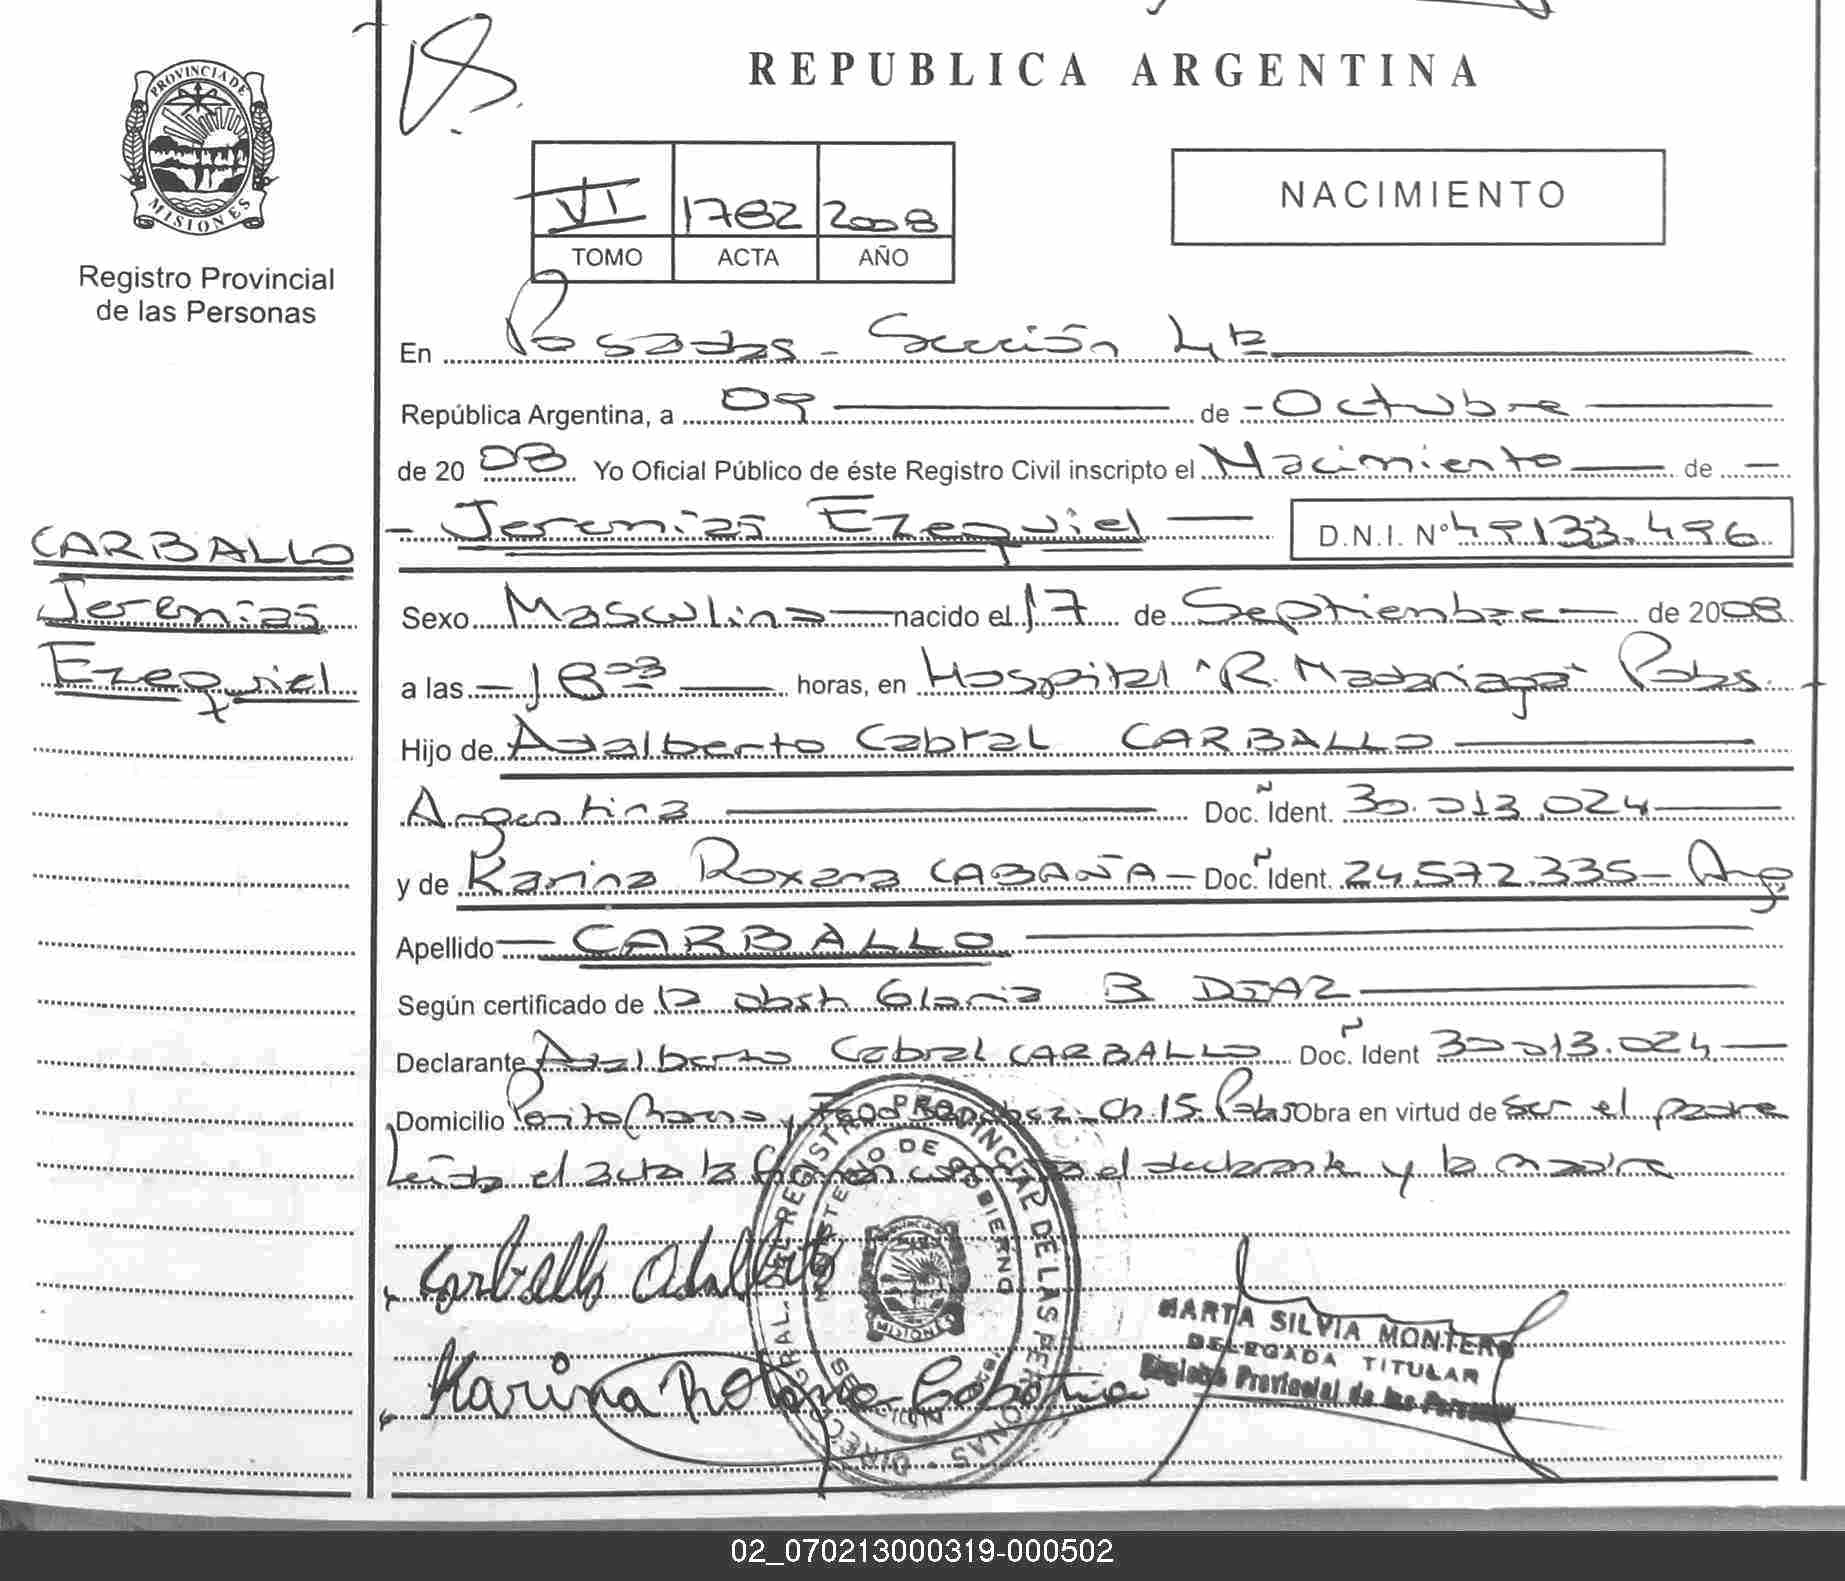 REPUBLICA ARGENTINA
PROVINCIA DE
MISIONES
Registro Provincial
de las Personas
VI 1782 2008
TOMO ACTA AÑO
NACIMIENTO
En Posadas - Sección 4ta
República Argentina, a 09 de - Octubre
de 2008 Yo Oficial Público de éste Registro Civil inscripto el Nacimiento de -
- Jeremias Ezequiel D.N.I. Nº
CARBALLO
Jeremias
Ezequiel
Sexo Masculino nacido el 17 de Septiembre de 2008
a las - 18 03 horas, en Hospital "R. Madariaga" Pdas.
Hijo de Adalberto Cabral CARBALLO
Argentina Doc. Ident. 30.013.024
y de Karina Roxana CABAÑA - Doc. Ident. 24.572.335 - Arg
Apellido - CARBALLO
Según certificado de la obst. Gloria B DIAZ
Declarante Adalberto Cabral CARBALLO Doc. Ident 30.013.024
Domicilio Perito Moreno y Ch. 15. Pdas Obra en virtud de ser el padre
Leída el acta la firman el declarante y la madre
Carballo Adalberto
Karina
DIREC. GRAL. DEL REGISTRO PROVINCIAL DE LAS PERSONAS
MINISTERIO DE GOBIERNO
MISIONES
MARTA SILVIA MONTERO
DELEGADA TITULAR
Registro Provincial de las Personas
02_070213000319-000502